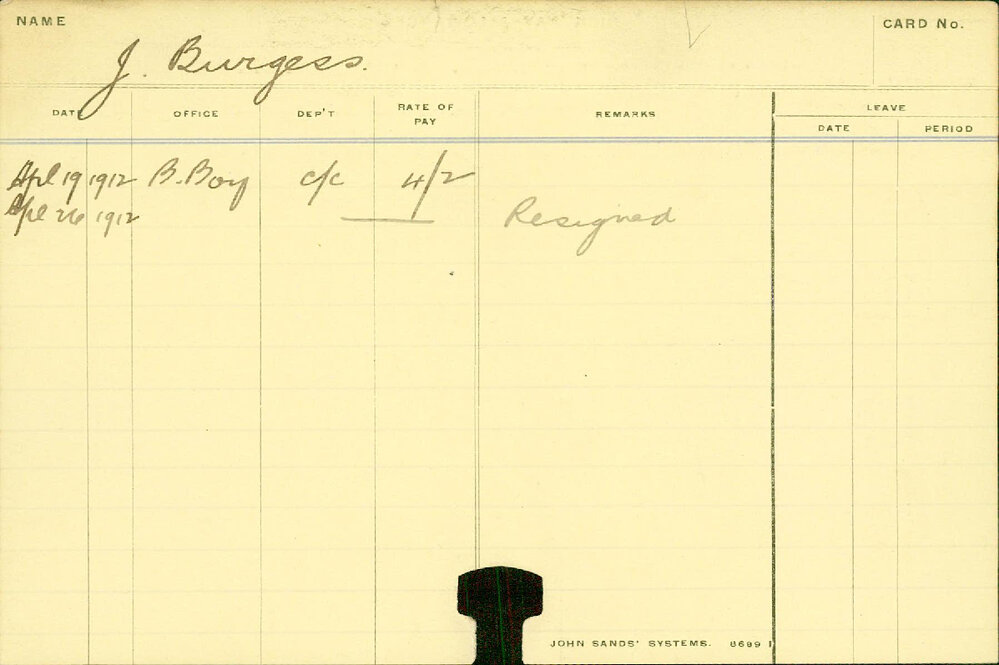 NAME
J. Burgess.
CARD No.
DATE OFFICE DEP'T RATE OF PAY REMARKS LEAVE
DATE PERIOD
Apl 19 1912 B. Boy c/c 4/2
Apl 26 1912 Resigned
JOHN SANDS' SYSTEMS. 8699